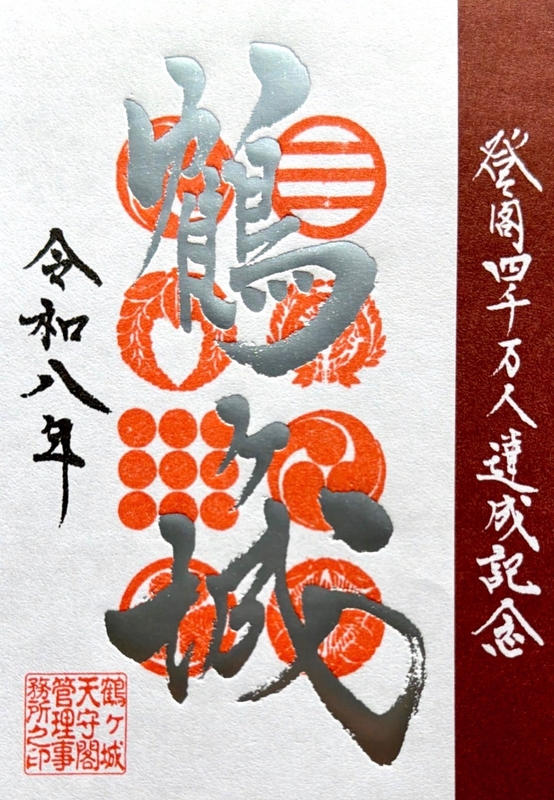 登閣四千万人達成記念
鶴ヶ城
令和八年
鶴ヶ城
天守閣
管理事
務所之印